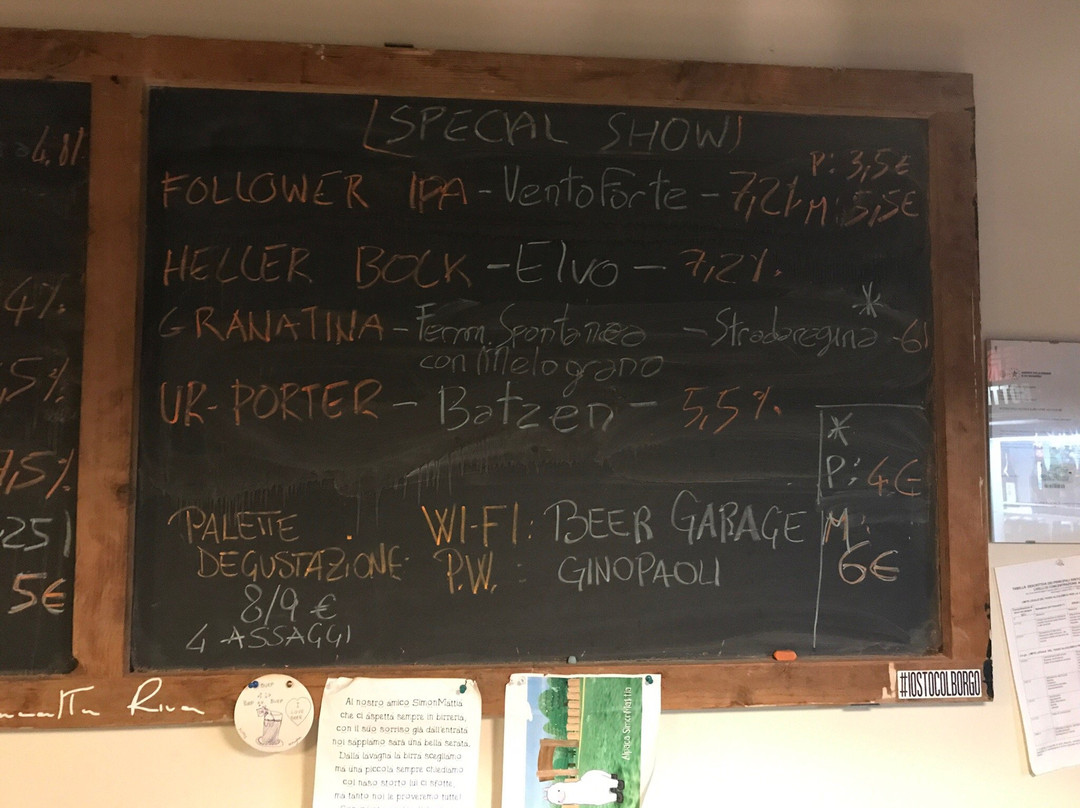 4%.
,5%
,5%
25)
5€
[SPECIAL SHOW]
P: 3,5€
FOLLOWER IPA - VentoForte - 7,2% M: 5,5€
HELLER BOCK - Elvo - 7,2%.
*
GRANATINA - Ferm. Spontanea - Stradaregina - 6%
con Melograno
UR-PORTER - Batzen - 5,5%.
*
P: 4€
M:
6€
PALETTE
DEGUSTAZIONE
8/9 €
4 ASSAGGI
WI-FI: BEER GARAGE
P.W. : GINOPAOLI
Riva
#IOSTOCOLBORGO
Al nostro amico SimonMattia
che ci aspetta sempre in birreria,
con il suo sorriso già dall'entrata
noi sappiamo sarà una bella serata.
Dalla lavagna la birra scegliamo
ma una piccola sempre chiediamo
col naso storto lui ci sfotte,
ma tanto noi le proveremo tutte!
Alpaca SimonMattia